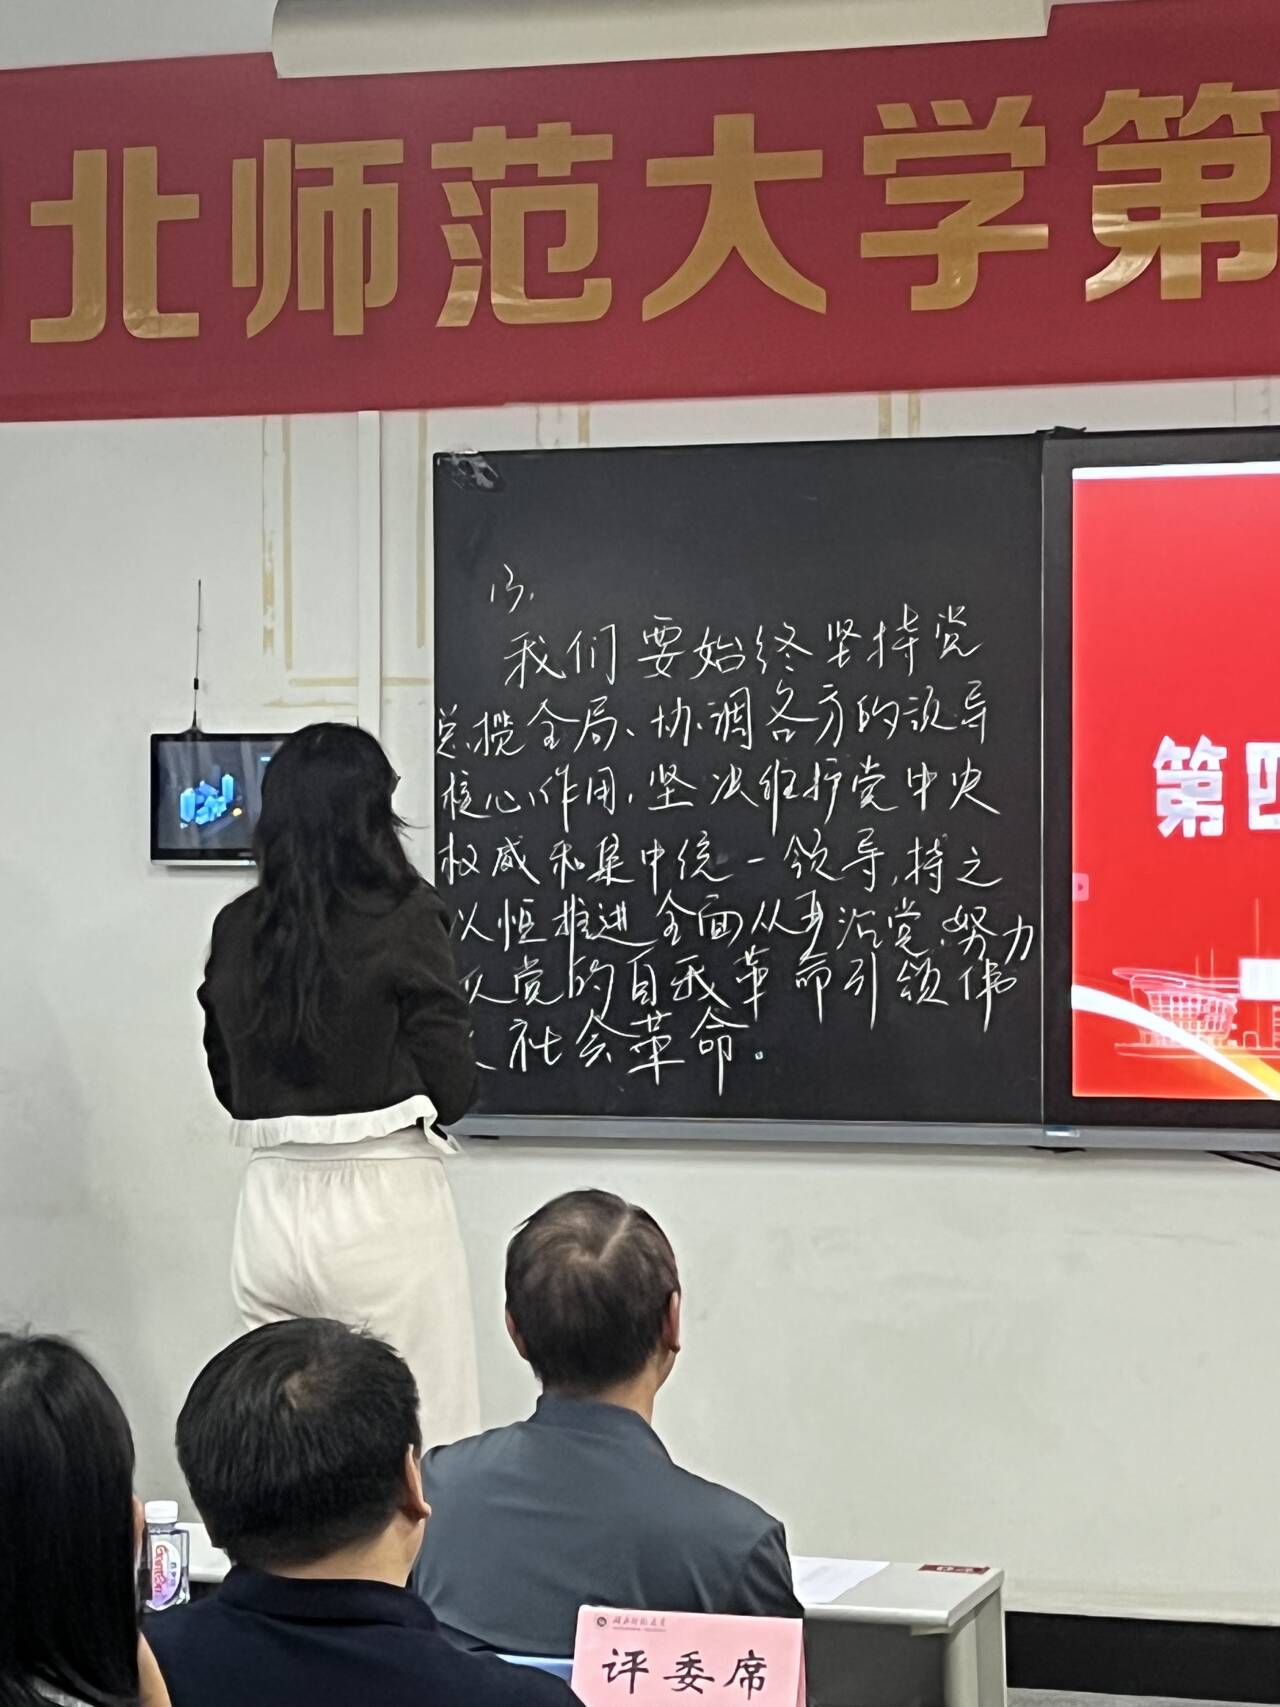 北师范大学第
第四
13.
我们要始终坚持党
总揽全局、协调各方的领导
核心作用,坚决维护党中央
权威和集中统一领导,持之
以恒推进全面从严治党,努力
以党的自我革命引领伟
社会革命。
评委席